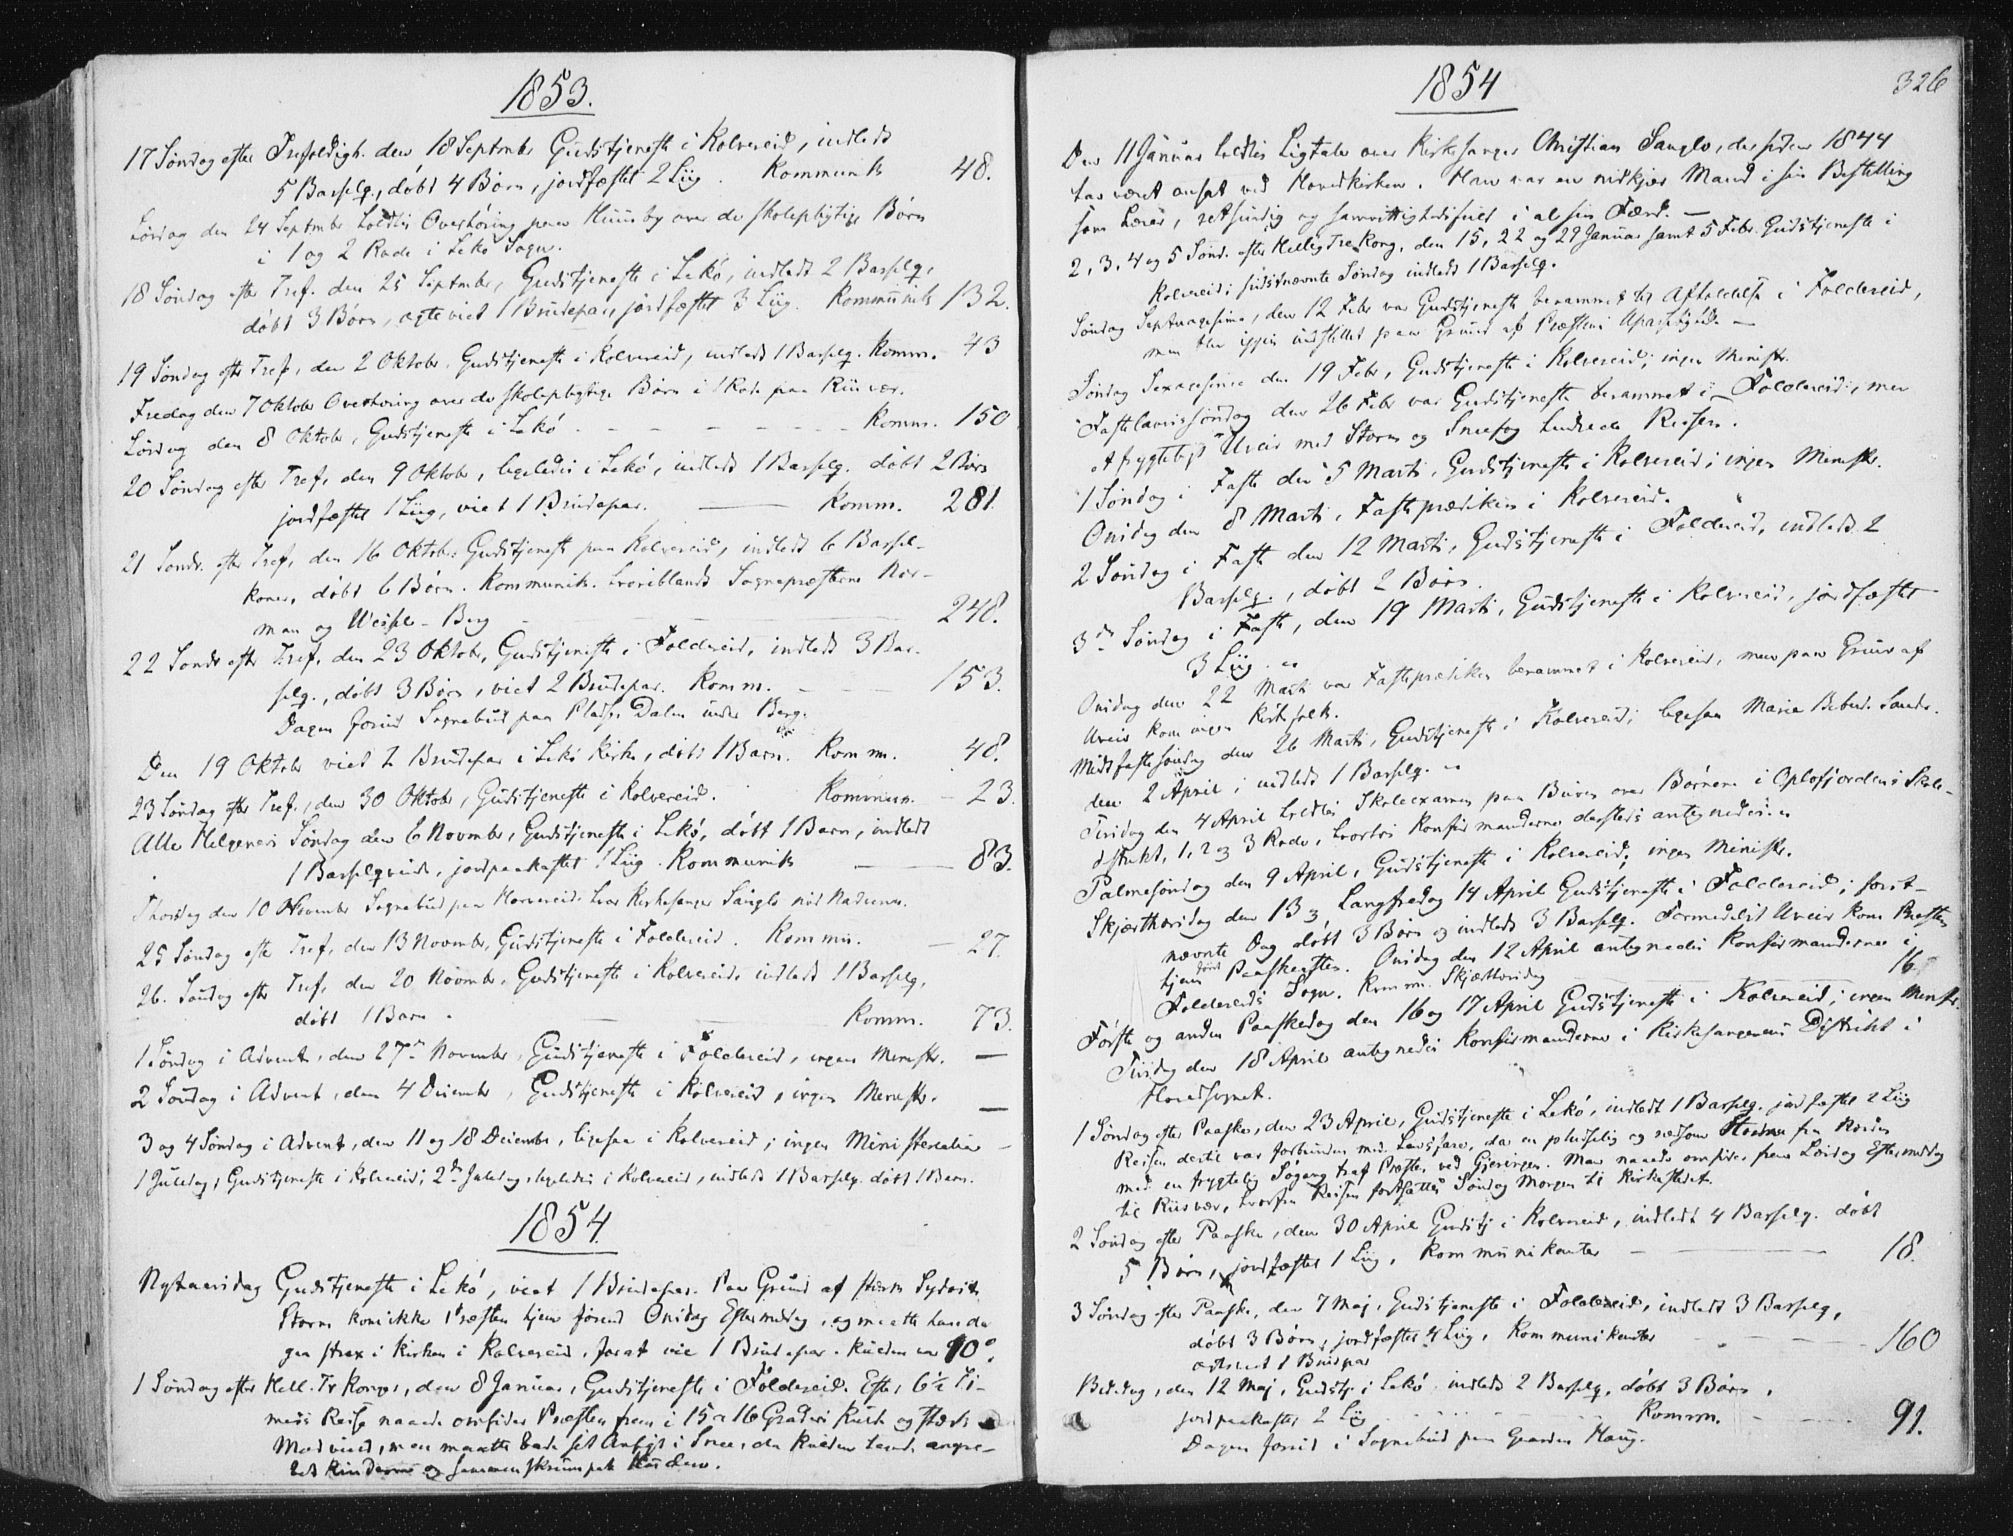 1853.
17 Søndag efter Trefoldigh. den 18 Septmbr Gudstjeneste i Kolvereid, indledt
5 Barselq., døbt 4 Børn, jordfæstet 2 Liig. Kommunik 48.
Lørdag den 24 Septmbr holdtes Overhøring paa Huusby over de skolepligtige Børn
i 1 og 2 Rode i Lekø Sogn.
18 Søndag efter Tref. den 25 Septmbr, Gudstjeneste i Lekø, indledt 2 Barselq.
døbt 3 Børn, ægteviet 1 Brudepar, jordfæstet 3 Liig. Kommunik 132.
19 Søndag efter Tref. den 2 Oktobr. Gudstjeneste i Kolvereid, indledt 1 Barselq. Komm. 43
Fredag den 7 Oktobr Overhøring over de skolepligtige Børn i 1 Rode paa Riisvær.
Lørdag den 8 Oktobr, Gudstjeneste i Lekø - - - - Komm. 150
20 Søndag efter Tref. den 9 Oktobr, ligeledes i Lekø, indledt 1 Barselq. døbt 2 Børn
jordfæstet 1 Liig, viet 1 Brudepar. — Komm. 281.
21 Sønd. efter Tref. den 16 Oktobr. Gudstjeneste paa Kolvereid, indledt 6 Barsel-
koner, døbt 6 Børn. Kommunik. hvoriblandt Sognepræsterne Nor-
man og Weisse-Berg - - - 248.
22 Sønd. efter Tref. den 23 Oktobr, Gudstjeneste i Foldereid, indledt 3 Bar-
selq., døbt 3 Børn, viet 2 Brudepar. Komm. - - - 153.
Dagen forud Sognebud paa Pladsen Dalen under Berg.
Den 19 Oktobr viet 2 Brudepar i Lekø Kirke, døbt 1 Barn. Komm. 48.
23 Søndag efter Tref., den 30 Oktobr, Gudstjeneste i Kolvereid. Kommun. - 23.
Alle Helgenes Søndag den 6 Novmbr, Gudstjeneste i Lekø, døbt 1 Barn, indledt
1 Barselqvinde, jordpaakastet 1 Liig. Kommunik — 83.
Thorsdag den 10 November Sognebud paa Horvereid hos Kirkesanger Sanglo
25 Søndag efter Tref. den 13 Novmbr, Gudstjeneste i Foldereid. Kommun. — 27.
26. Søndag efter Tref. den 20 Novmbr, Gudstjeneste i Kolvereid, indledt 1 Barselq.
døbt 1 Barn. — Komm. 73.
1 Søndag i Advent, den 27de November, Gudstjeneste i Foldereid, ingen Ministr. —
2 Søndag i Advent, den 4 Decembr, Gudstjeneste i Kolvereid, ingen Ministr. —
3 og 4 Søndag i Advent, den 11 og 18 Decembr, ligesaa i Kolvereid; ingen Ministerialia —
1 Juledag, Gudstjeneste i Kolvereid; 2den Juledag, ligeledes i Kolvereid, indledt 1 Barselq. døbt 1 Barn.
1854.
Nytaarsdag Gudstjeneste i Lekø, viet 1 Brudepar. Paa Grund af stærk Sydvest
Storm kom ikke Præsten hjem førend Onsdag Eftermiddag, og maatte han da
gaa strax i Kirken i Kolvereid, for at vie 1 Brudepar. Kulden var 10°.
1 Søndag efter Hell. Tr. Konger, den 8 Januar, Gudstjeneste i Foldereid. Efter 6½ Ti-
mers Reise naaede omsider Præsten frem i 15 a 16 Graders Kulde og stærk
Modvind, men maatte bade sit Ansigt i Snee, da Kulden havde angre-
bet Kinderne og sammenskrumpet Huden.
1854
326
Den 11 Januar holdtes Ligtale over Kirkesanger Christian Sanglo, der siden 1844
har været ansat ved Hovedkirken. Han var en nidkjær Mand i sin Bestilling
som Lærer, retsindig og samvittighedsfuld i al sin Færd. —
2, 3, 4 og 5 Sønd. efter Hellig Tre Kong. den 15, 22 og 29 Januar samt 5 Febr. Gudstjeneste i
Kolvereid; sidstnævnte Søndag indledt 1 Barselq.
Søndag Septuagesima, den 12 Febr var Gudstjeneste berammet til Afholdelse i Foldereid,
men blev igjen indstillet paa Grund af Præstens Upasselighed. —
Søndag Sexagesima den 19 Febr, Gudstjeneste i Kolvereid; ingen Ministr.
Fastelavnssøndag den 26 Febr var Gudstjeneste berammet i Foldereid, men
et frygteligt Uveir med Storm og Sneefog hindrede Reisen.
1 Søndag i Faste den 5 Marts, Gudstjeneste i Kolvereid; ingen Ministr.
Onsdag den 8 Marts, Fasteprædiken i Kolvereid.
2 Søndag i Faste den 12 Marts, Gudstjeneste i Foldereid, indledt 2
Barselq., døbt 2 Børn.
3die Søndag i Faste, den 19 Marts, Gudstjeneste i Kolvereid, jordfæstet
3 Liig.
Onsdag den 22 Marts var Fasteprædiken berammet i Kolvereid, men paa Grund af
Uveir kom ingen Kirkefolk.
Midfastesøndag den 26 Marts, Gudstjeneste i Kolvereid; ligesaa Maria Bebud. Sønd.
den 2 April; indledt 1 Barselq.
Tirsdag den 4 April holdtes Skoleexamen paa Buren over Børnene i Opløfjordens Skole-
distrikt, 1, 2 og 3 Rode, hvorhos Konfirmanderne dersteds antegnedes.
Palmesøndag den 9 April, Gudstjeneste i Kolvereid; ingen Ministr.
Skjærthorsdag den 13 og Langfredag 14 April Gudstjeneste i Foldereid; først-
nævnte Dag døbt 3 Børn og indledt 3 Barselq. Formedelst Uveir kom Præsten
hjem først Paaskeaften. Onsdag den 12 April antegnedes Konfirmanderne i
Foldereids Sogn. Komm. Skjærthorsdag — 16
Første og anden Paaskedag den 16 og 17 April Gudstjeneste i Kolvereid; ingen Ministr.
Tirsdag den 18 April antegnedes Konfirmanderne i Kirkesangerens Distrikt i
Hovedsognet.
1 Søndag efter Paaske, den 23 April, Gudstjeneste i Lekø, indledt 1 Barselq. jordfæstet 2 Liig
Reisen dertil var forbunden med Livsfare, da en pludselig og voldsom Storm fra Norden
med en frygtelig Søgang traf Præsten ved Gjæsingen. Man naaede omsider frem Lørdag Eftermiddag
til Riisvær, hvorfra Reisen fortsattes Søndag Morgen til Kirkestedet.
2 Søndag efter Paaske, den 30 April Gudstj. i Kolvereid, indledt 4 Barselq. døbt
5 Børn, jordfæstet 1 Liig, Kommunikanter — 18.
3 Søndag efter Paaske, den 7 Maj, Gudstjeneste i Foldereid, indledt 3 Barselq,
døbt 3 Børn, jordfæstet 4 Liig, Kommunikanter - - - 160
ægteviet 1 Brudpar
Bededag, den 12 Maj, Gudstj. i Lekø, indledt 2 Barselq, døbt 3 Børn,
jordpaakastet 2 Liig - - - Komm. - - - 91.
Dagen forud i Sognebud paa Gaarden Haug.